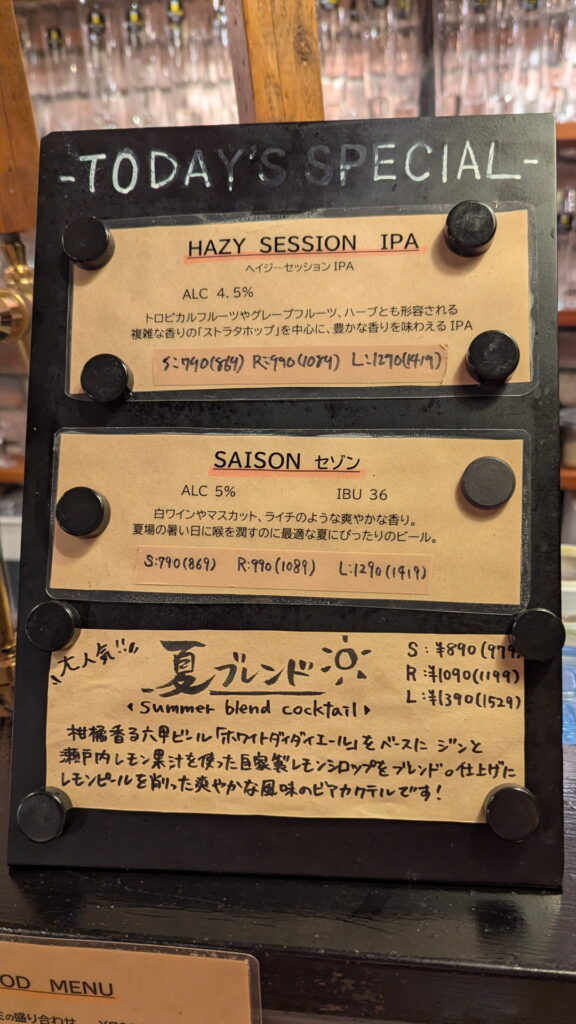 -TODAY'S SPECIAL-
HAZY SESSION IPA
ヘイジーセッション IPA
ALC 4.5%
トロピカルフルーツやグレープフルーツ、ハーブとも形容される
複雑な香りの「ストラタホップ」を中心に、豊かな香りを味わえる IPA
S:790(869) R:990(1089) L:1290(1419)
SAISON セゾン
ALC 5% IBU 36
白ワインやマスカット、ライチのような爽やかな香り。
夏場の暑い日に喉を潤すのに最適な夏にぴったりのビール。
S:790(869) R:990(1089) L:1290(1419)
大人気!!!
夏ブレンド
summer blend cocktail
S:¥890(979)
R:¥1090(1199)
L:¥1390(1529)
柑橘香る六甲ビール「ホワイトダイダイエール」をベースに ジンと
瀬戸内レモン果汁を使った自家製レモンシロップをブレンド。仕上げに
レモンピールを削った爽やかな風味のビアカクテルです!
OD MENU
の盛り合わせ